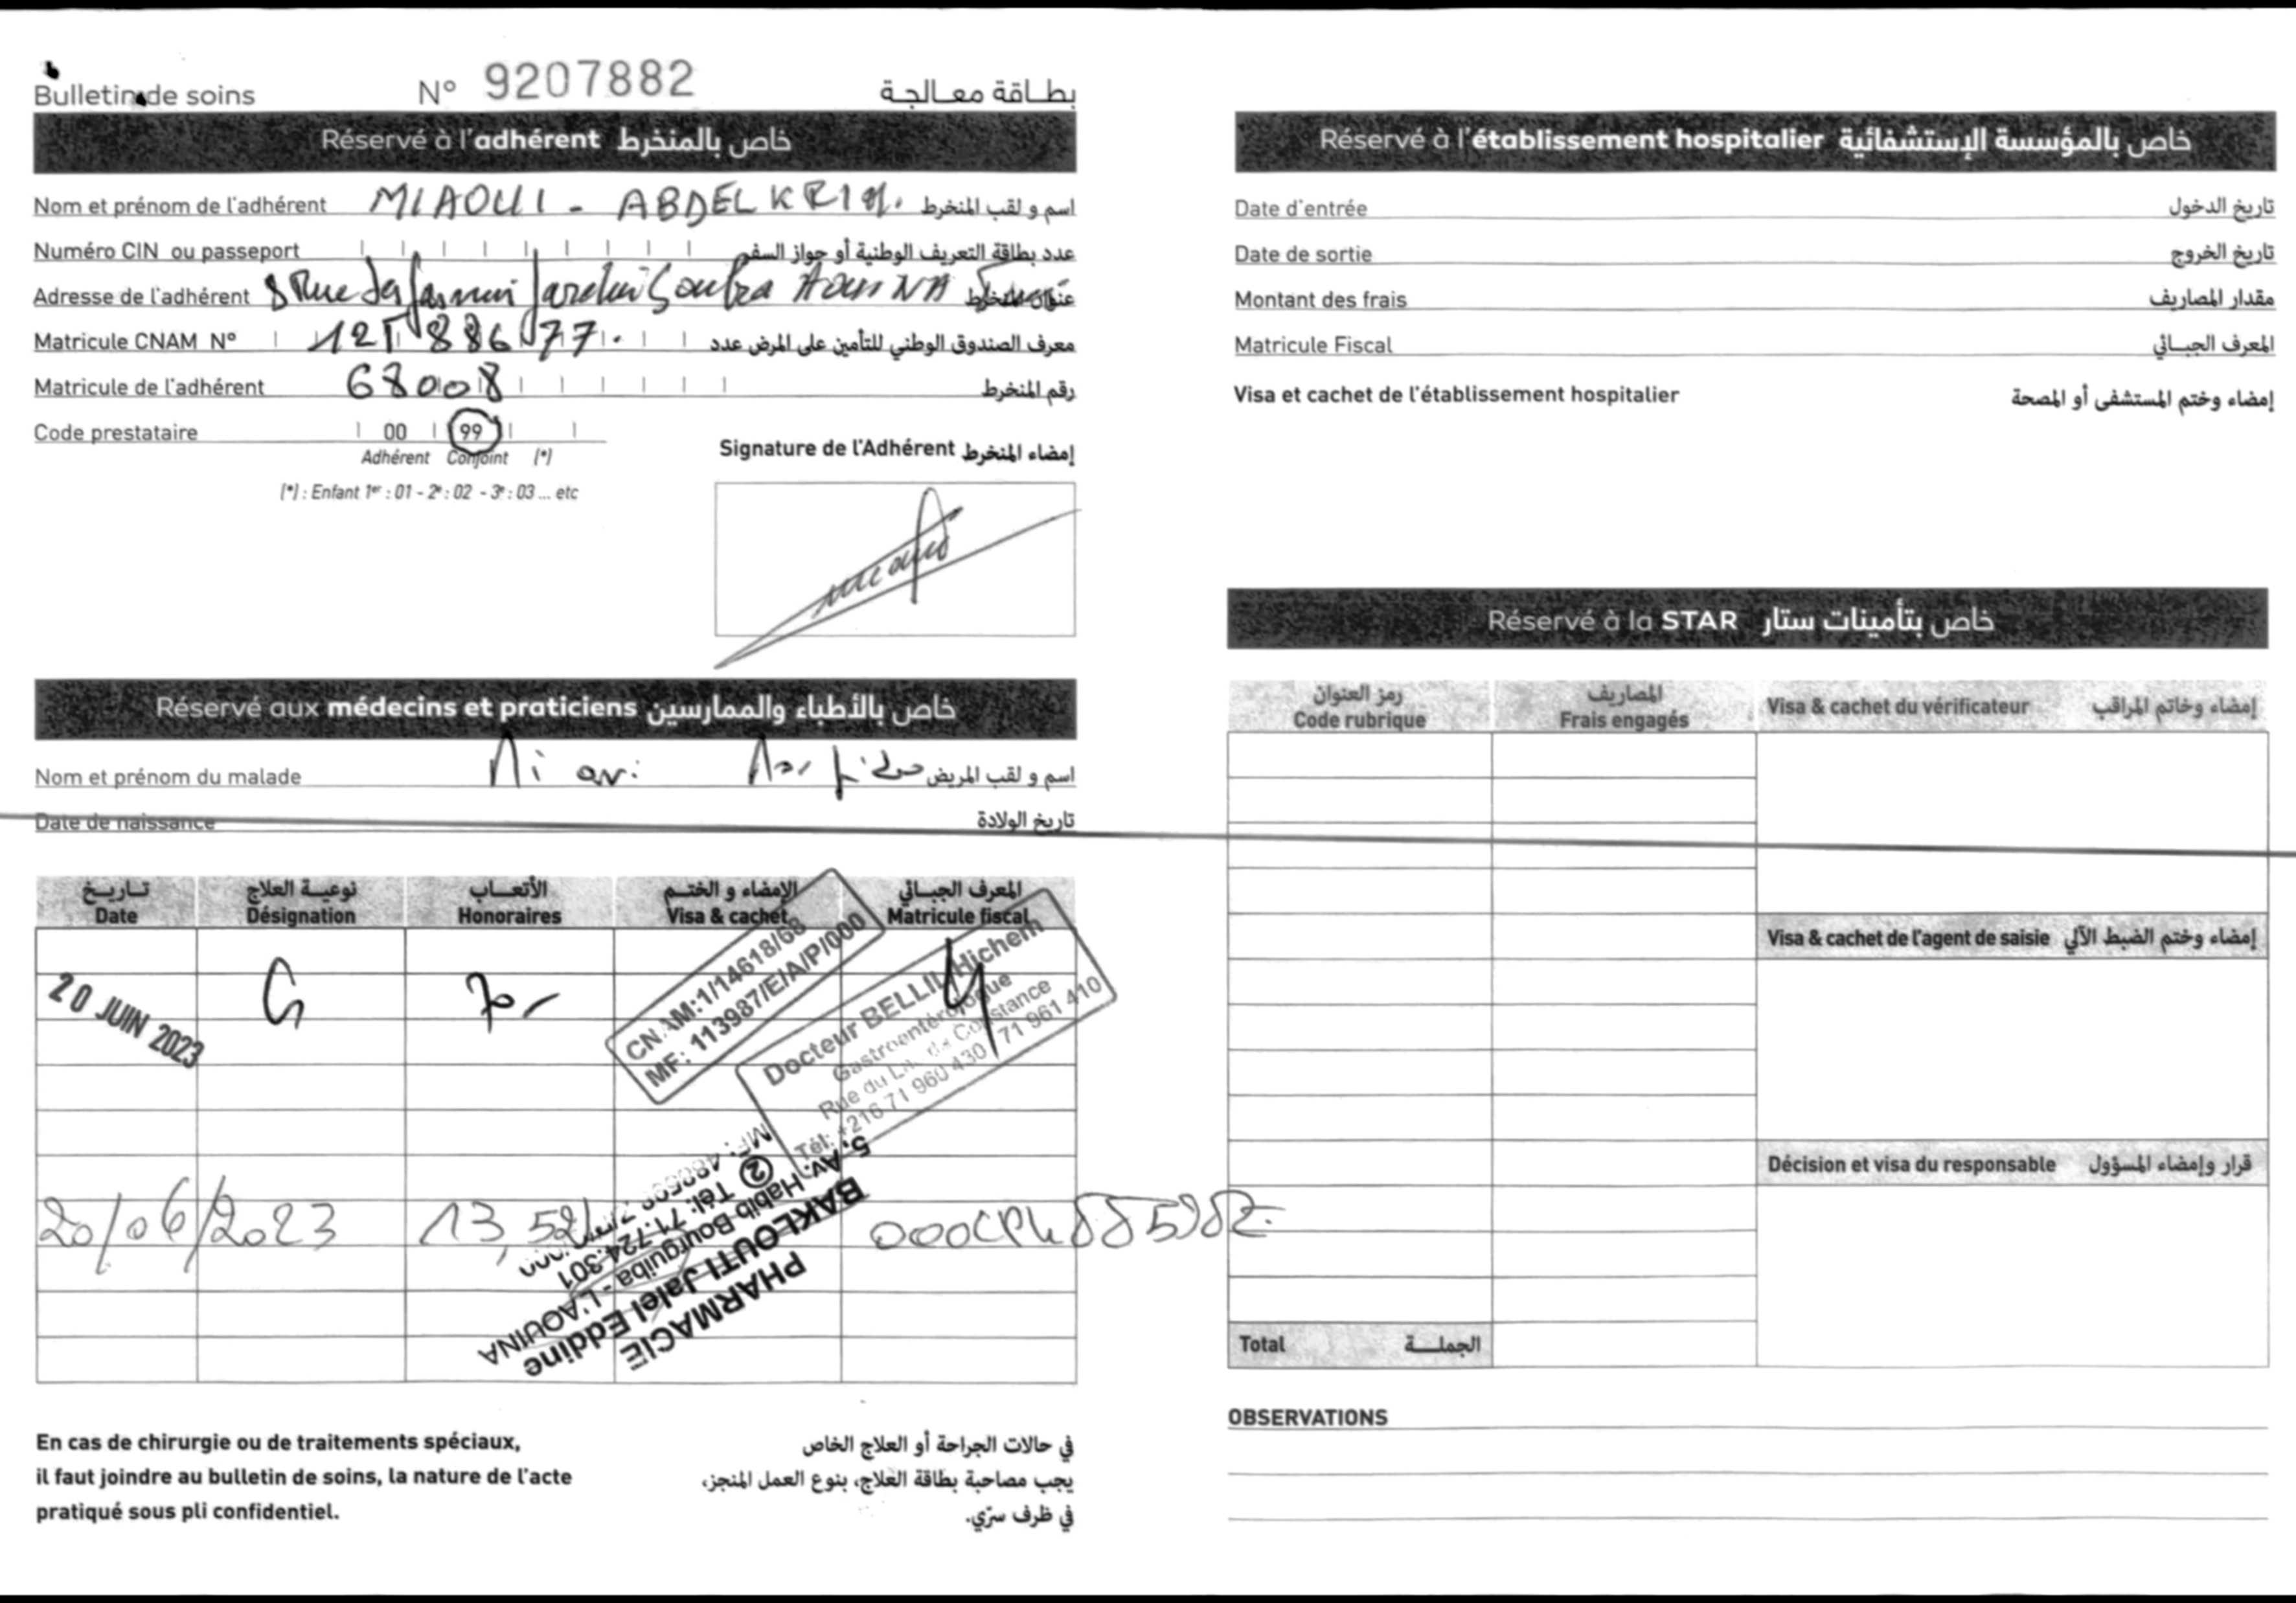 Bulletin de soins N° 9207882 بطاقة معالجة
Réservé à l'adhérent خاص بالمنخرط
Nom et prénom de l'adhérent MIAOUI - ABDELKRIM. اسم و لقب المنخرط
Numéro CIN ou passeport عدد بطاقة التعريف الوطنية أو جواز السفر
Adresse de l'adhérent 8 Rue Jardin Soukra AOUINA عنوان المنخرط
Matricule CNAM N° 886 77. معرف الصندوق الوطني للتأمين على المرض عدد
Matricule de l'adhérent 68008 رقم المنخرط
Code prestataire 00 99
Adhérent Conjoint (*)
(*) : Enfant 1er : 01 - 2e : 02 - 3e : 03 ... etc
Signature de l'Adhérent إمضاء المنخرط
Réservé aux médecins et praticiens خاص بالأطباء والممارسين
Nom et prénom du malade اسم و لقب المريض
Date de naissance تاريخ الولادة
تاريخ نوعية العلاج الأتعاب الإمضاء و الختم المعرف الجبائي
Date Désignation Honoraires Visa & cachet Matricule fiscal
20 JUIN 2023
CNAM:1/14618/68
MF: 113987/E/A/P/000
Docteur BELLIL Hichem
Gastroentérologue
Rue du Lac de Constance
Tél: +216 71 960 430 / 71 961 410
20/06/2023 13,52
PHARMACIE
BAKLOUTI Jalel Eddine
5, Av. Habib Bourguiba - L'AOUINA
Tél: 71.724.301
En cas de chirurgie ou de traitements spéciaux,
il faut joindre au bulletin de soins, la nature de l'acte
pratiqué sous pli confidentiel.
في حالات الجراحة أو العلاج الخاص
يجب مصاحبة بطاقة العلاج، بنوع العمل المنجز،
في ظرف سرّي.
Réservé à l'établissement hospitalier خاص بالمؤسسة الإستشفائية
Date d'entrée تاريخ الدخول
Date de sortie تاريخ الخروج
Montant des frais مقدار المصاريف
Matricule Fiscal المعرف الجبائي
Visa et cachet de l'établissement hospitalier إمضاء وختم المستشفى أو المصحة
Réservé à la STAR خاص بتأمينات ستار
رمز العنوان المصاريف
Code rubrique Frais engagés Visa & cachet du vérificateur إمضاء وخاتم المراقب
Visa & cachet de l'agent de saisie إمضاء وختم الضبط الآلي
Décision et visa du responsable قرار وإمضاء المسؤول
Total الجملة
OBSERVATIONS